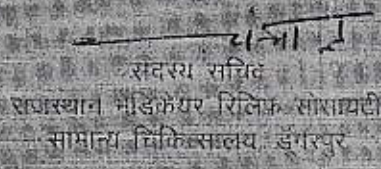 सदस्य सचिव
राजस्थान मेडिकेयर रिलिफ सोसायटी
सामान्य चिकित्सालय डूंगरपुर